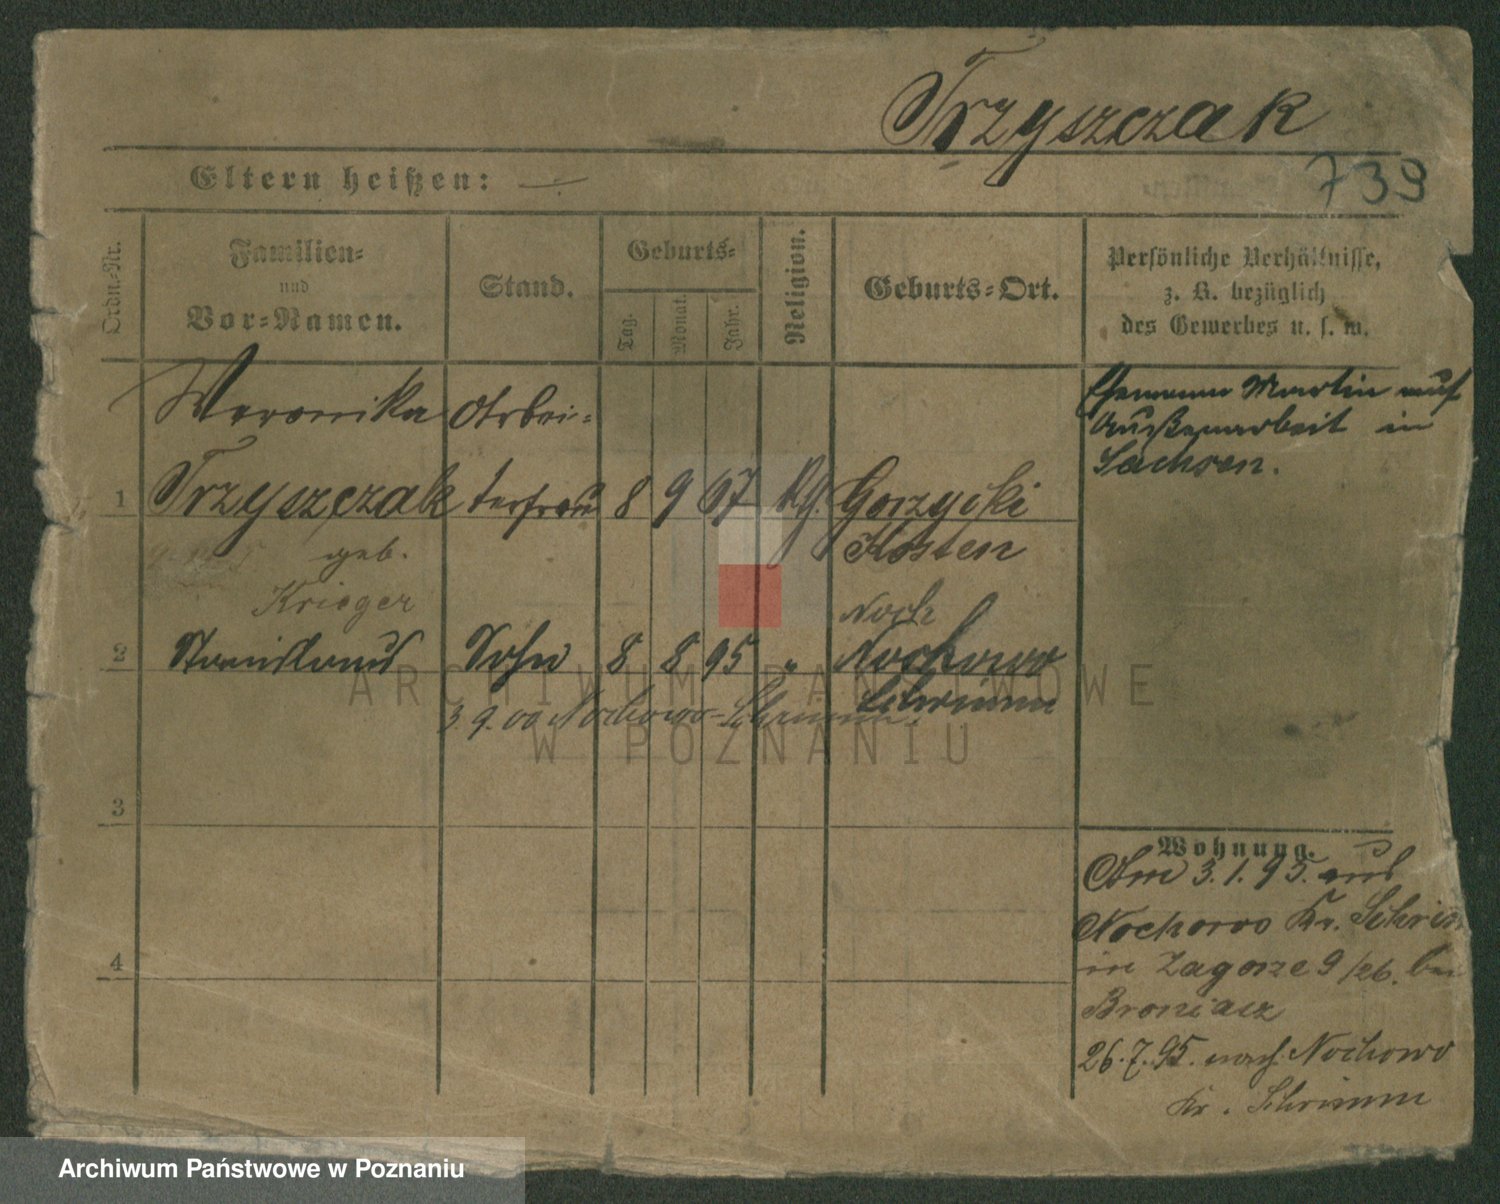 Trzyszczak
739
Eltern heißen: —
Ordn.-Nr.
Familien-
und
Vor-Namen.
Stand.
Geburts-
Tag.
Monat.
Jahr.
Religion.
Geburts-Ort.
Persönliche Verhältnisse,
z. B. bezüglich
des Gewerbes u. s. w.
Weronika Arbei-
1 Trzyszczak terfrau 8 9 67 Gorzycki
geb. Kosten
Krieger
2 Stanislaus Sohn 8 8 95 " Nochowo
Schrimm
3.9.00 Nochowo-Schrimm.
3
4
Ehemann Martin auf
Außenarbeit in
Sachsen.
Wohnung.
Am 3.1.95. aus
Nochowo Kr. Schrim
in Zagorze 9/26. bei
Broniasz
26.7.95. nach Nochowo
Kr. Schrimm
ARCHIWUM PAŃSTWOWE
W POZNANIU
Archiwum Państwowe w Poznaniu